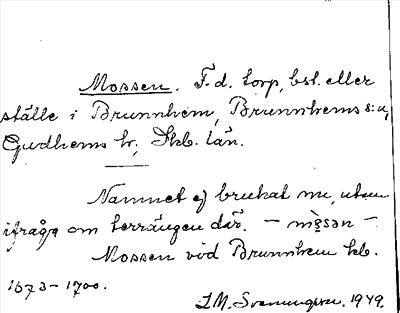 Mossen. F.d. torp, bst. eller
ställe i Brunnhem, Brunnhems s:n,
Gudhems hd; Skb. län.
Namnet ej brukat nu, utom
ifråga om terrängen där. — mòsən —
Mossen vid Brunnhem kb.
1673–1700.
I.M. Svenungsson. 1949.